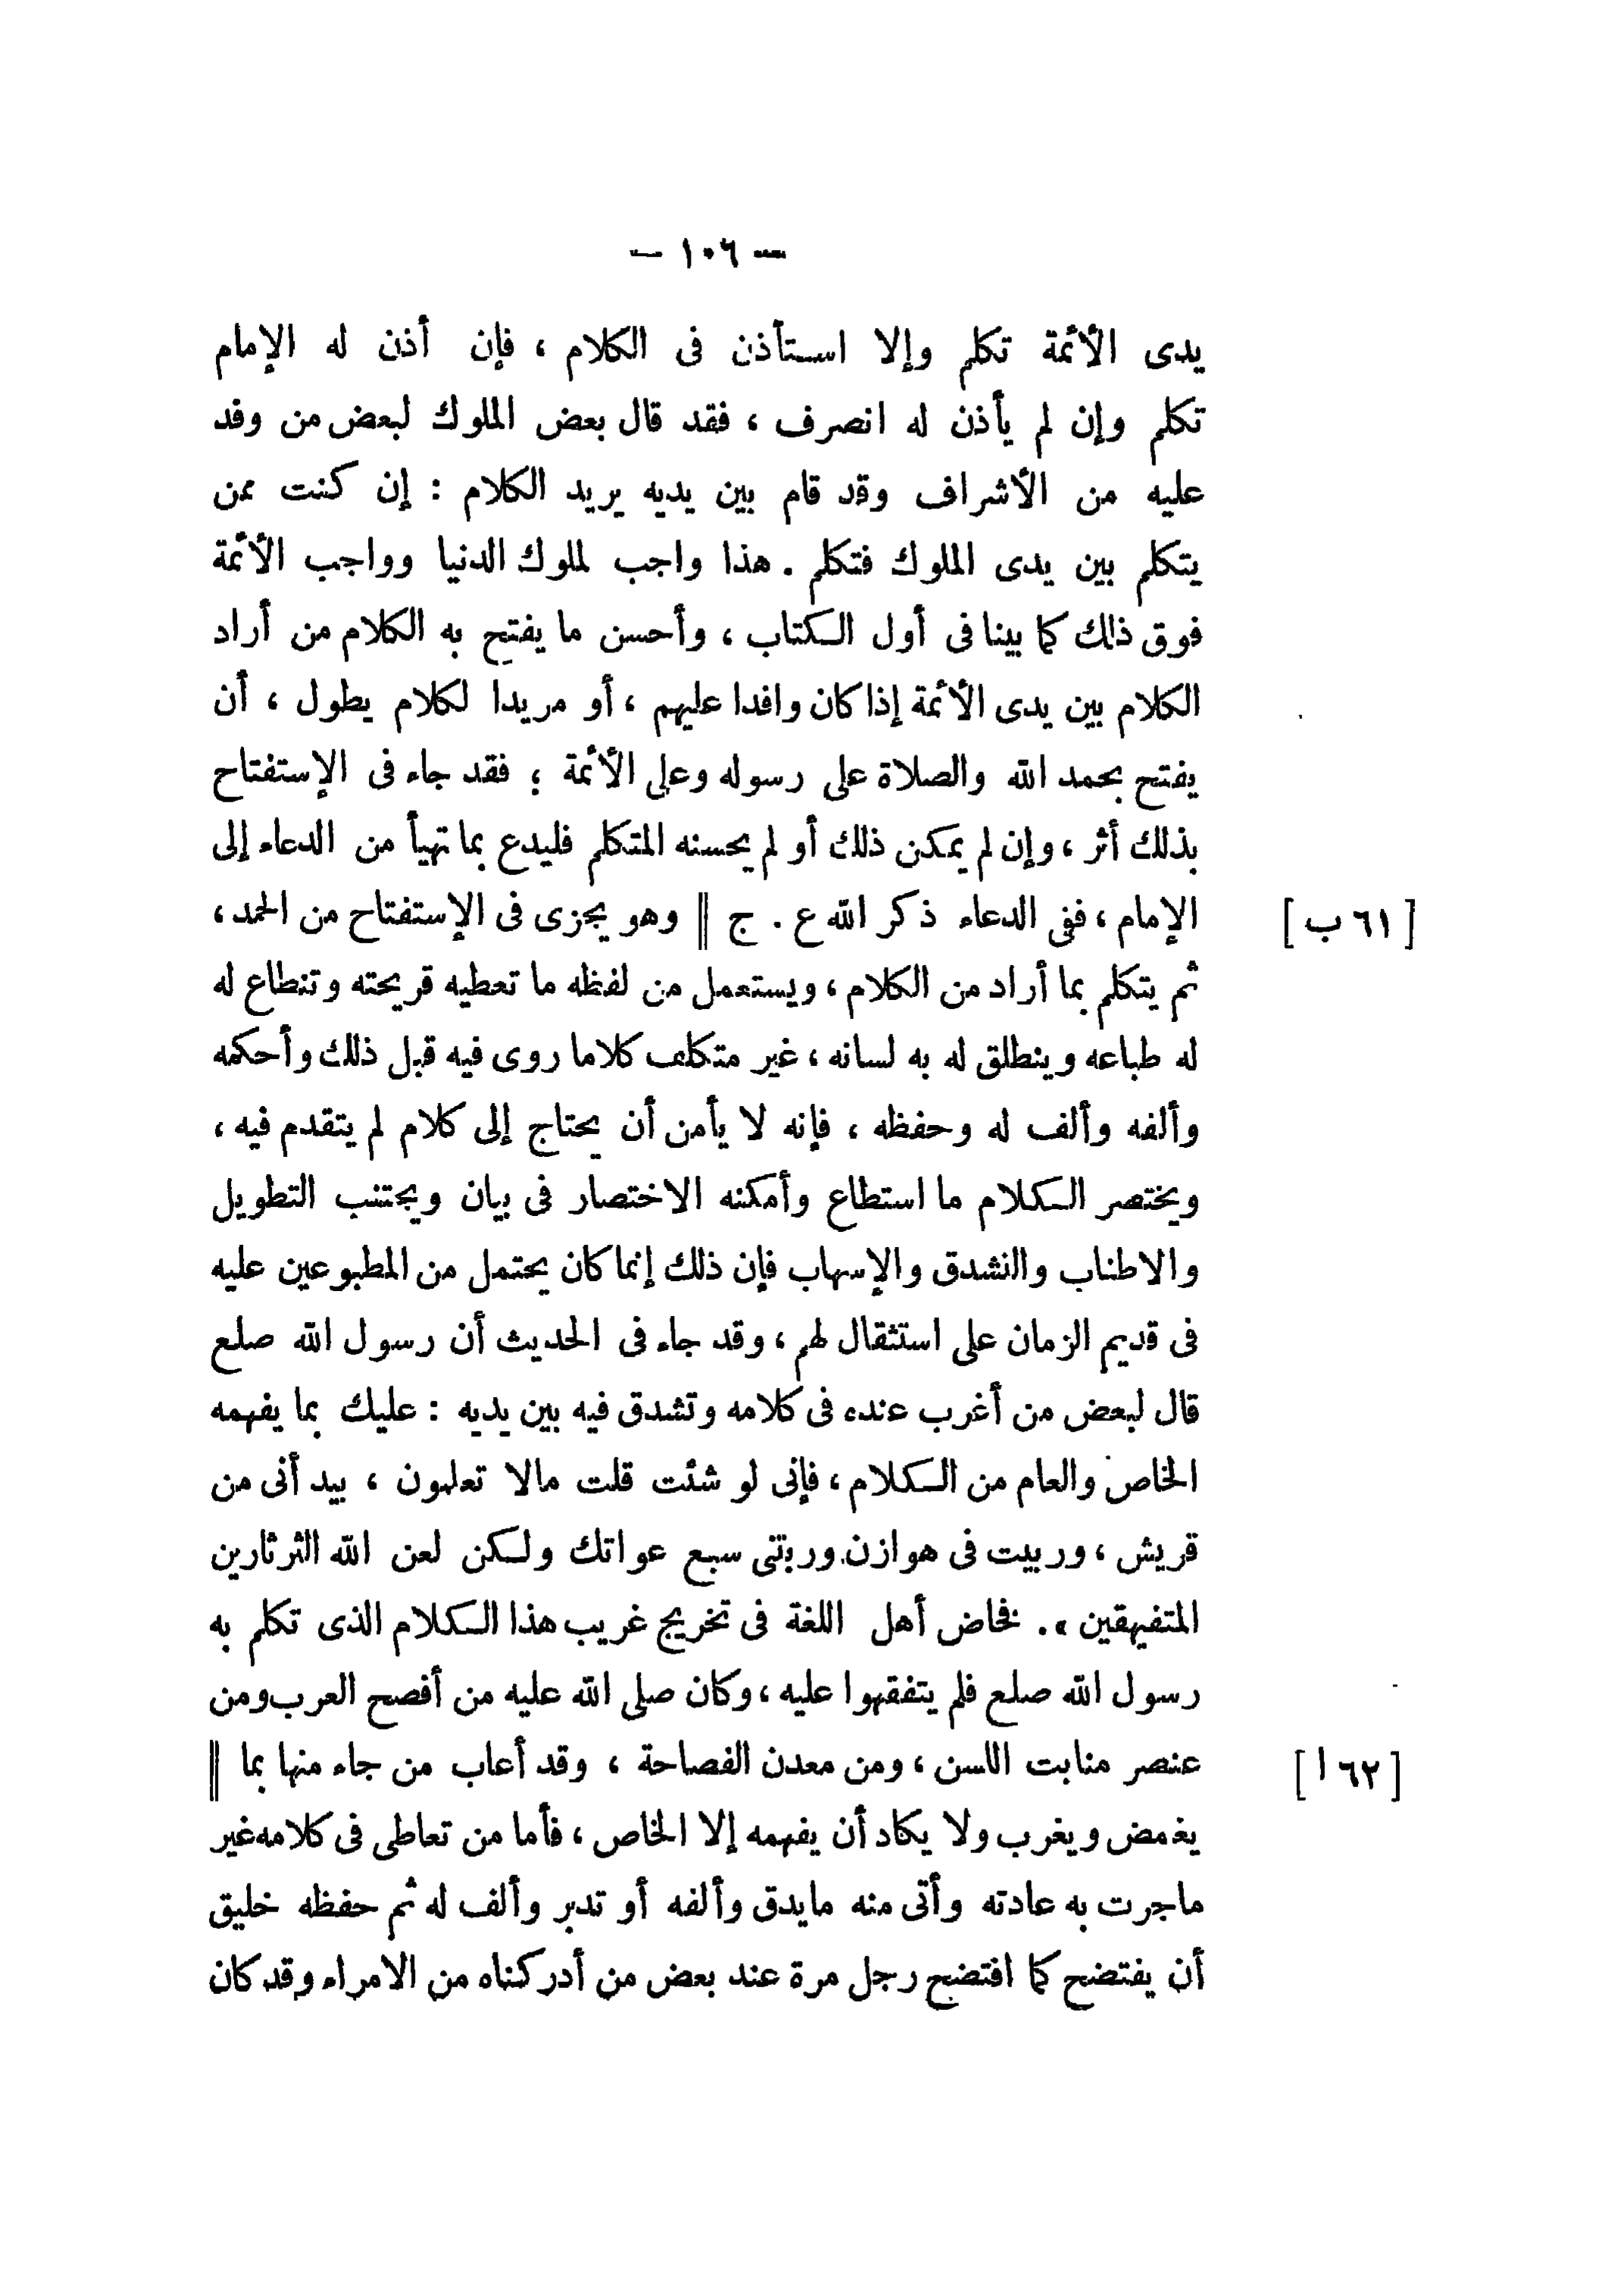 — ١٠٦ —
يدى الأئمة تكلم وإلا استأذن فى الكلام ، فإن أذن له الإمام
تكلم وإن لم يأذن له انصرف ، فقد قال بعض الملوك لبعض من وفد
عليه من الأشراف وقد قام بين يديه يريد الكلام : إن كنت ممن
يتكلم بين يدى الملوك فتكلم . هذا واجب لملوك الدنيا وواجب الأئمة
فوق ذلك كما بينا فى أول الكتاب ، وأحسن ما يفتح به الكلام من أراد
الكلام بين يدى الأئمة إذا كان وافدا عليهم ، أو مريدا لكلام يطول ، أن
يفتح بحمد الله والصلاة على رسوله وعلى الأئمة ؛ فقد جاء فى الإستفتاح
بذلك أثر ، وإن لم يمكن ذلك أو لم يحسنه المتكلم فليدع بما تهيأ من الدعاء إلى
الإمام ، ففى الدعاء ذكر الله ع . ج || وهو يجزى فى الإستفتاح من الحمد ، [ ٦١ ب ]
ثم يتكلم بما أراد من الكلام ، ويستعمل من لفظه ما تعطيه قريحته وتنطاع له
له طباعه وينطلق له به لسانه ، غير متكلف كلاما روى فيه قبل ذلك وأحكمه
وألفه وألف له وحفظه ، فإنه لا يأمن أن يحتاج إلى كلام لم يتقدم فيه ،
ويختصر الكلام ما استطاع وأمكنه الاختصار فى بيان ويجتنب التطويل
والاطناب والتشدق والإسهاب فإن ذلك إنما كان يحتمل من المطبوعين عليه
فى قديم الزمان على استثقال لهم ، وقد جاء فى الحديث أن رسول الله صلع
قال لبعض من أغرب عنده فى كلامه وتشدق فيه بين يديه : عليك بما يفهمه
الخاص والعام من الكلام ، فإنى لو شئت قلت مالا تعلمون ، بيد أنى من
قريش ، وربيت فى هوازن وربتنى سبع عواتك ولكن لعن الله الثرثارين
المتفيهقين » . فخاض أهل اللغة فى تخريج غريب هذا الكلام الذى تكلم به
رسول الله صلع فلم يتفقهوا عليه ، وكان صلى الله عليه من أفصح العرب ومن
عنصر منابت اللسن ، ومن معدن الفصاحة ، وقد أعاب من جاء منها بما || [ ٦٢ ا ]
يغمض ويغرب ولا يكاد أن يفهمه إلا الخاص ، فأما من تعاطى فى كلامه غير
ماجرت به عادته وأتى منه مايدق وألفه أو تدبر وألف له ثم حفظه خليق
أن يفتضح كما افتضح رجل مرة عند بعض من أدركناه من الامراء وقد كان